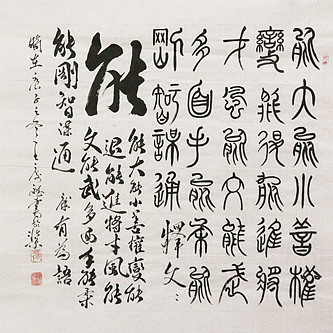 能大能小善權
變能退能進將
才風能文能武
多自手能柔能
剛智謀通 釋文：
能
能大能小善權變能
退能進將才風能
文能武多自手能柔
能剛智謀通 康有為語
歲在庚子之冬